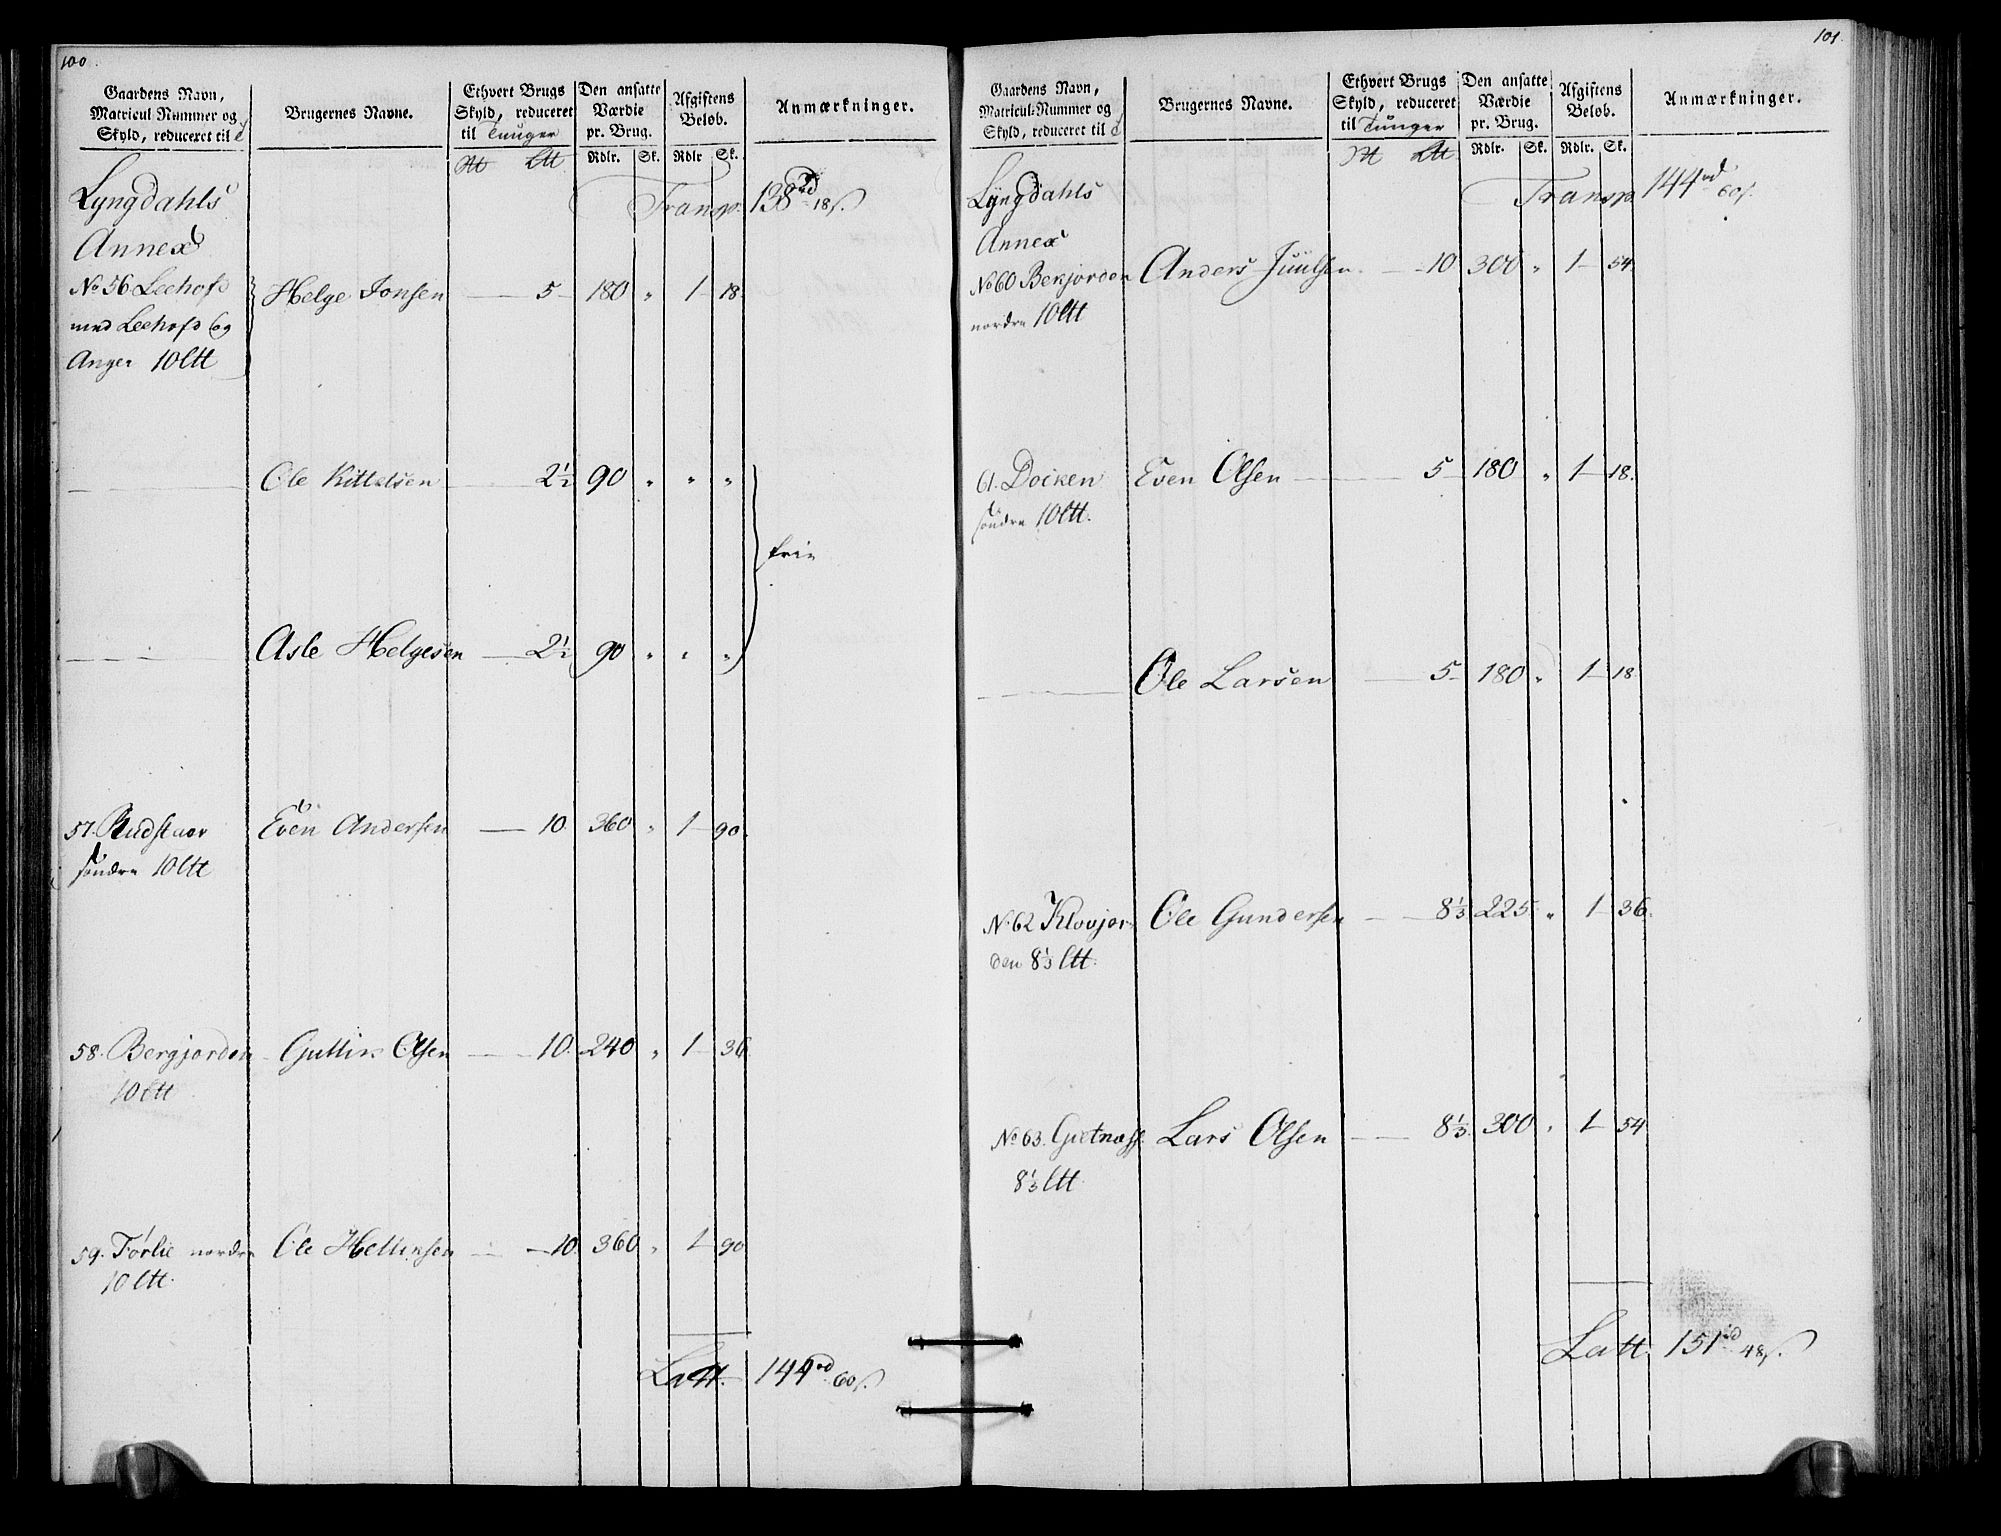 100.
Gaardens Navn,
Matricul Nummer og
Skyld, reduceret til
Brugernes Navne.
Ethvert Brugs
Skyld, reduceret
til Tunger
Den ansatte
Værdie
pr. Brug.
Afgiftens
Beløb.
Anmærkninger.
Rdlr. Sk. Rdlr Sk.
Lyngdahls Transp. 138rd 18s.
Annex
No 56 Leehofd Helge Jonsen 5 180 " 1 18
med Leehofd Eg
Anger 10 Ltt
Ole Kittelsen 2½ 90 " " "
frie
Asle Helgesen 2½ 90 " " "
57. Rudstuer Even Andersen 10. 360 " 1 90.
søndre 10 Ltt
58. Bergjorden Guttirs Olsen 10. 240 " 1 36
10 Ltt
59. Førlie nordre Ole Hellinsen 10. 360 " 1 90
10 Ltt.
Latt. 144rd 60s.
101.
Gaardens Navn,
Matricul-Nummer og
Skyld, reduceret til
Brugernes Navne.
Ethvert Brugs
Skyld, reduceret
til Tunger
Den ansatte
Værdie
pr. Brug.
Afgiftens
Beløb.
Anmærkninger.
Rdlr. Sk. Rdlr. Sk.
Lyngdahls Transp. 144rd 60s.
Annex
No 60 Bekjorden Anders Juulsen 10 300 " 1 54
nordre 10 Ltt
61. Docken Even Olsen 5 180 " 1 18.
søndre 10 Ltt.
Ole Larsen 5 180 " 1 18
No 62 Klovjor- Ole Gundersen 8⅓ 225 " 1 36.
den 8⅓ Ltt.
No 63. Gietnæss Lars Olsen 8⅓ 300 " 1 54
8⅓ Ltt
Latt. 151rd 48s.